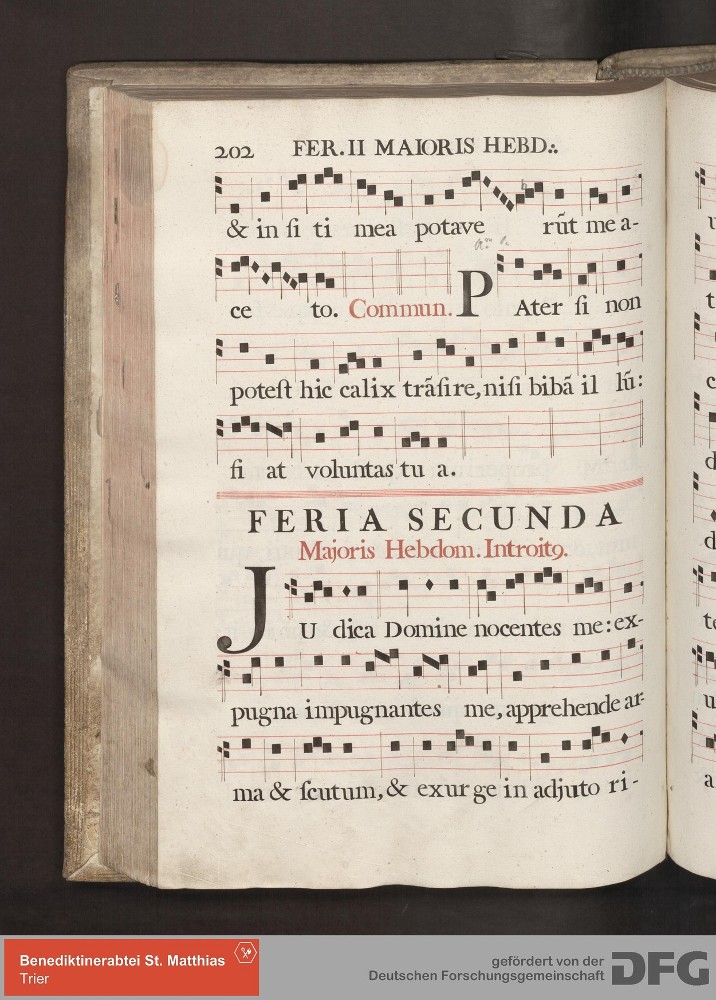 202 FER. II MAIORIS HEBD:.
& in ſi ti mea potave rūt me a-
ce to. Commun. PAter ſi non
poteſt hic calix trāſire, niſi bibā il lū:
fi at voluntas tu a.
FERIA SECUNDA
Majoris Hebdom. Introitꝯ.
JU dica Domine nocentes me: ex-
pugna impugnantes me, apprehende ar-
ma & ſcutum, & exur ge in adjuto ri-
Benediktinerabtei St. Matthias
Trier
gefördert von der
Deutschen Forschungsgemeinschaft
DFG